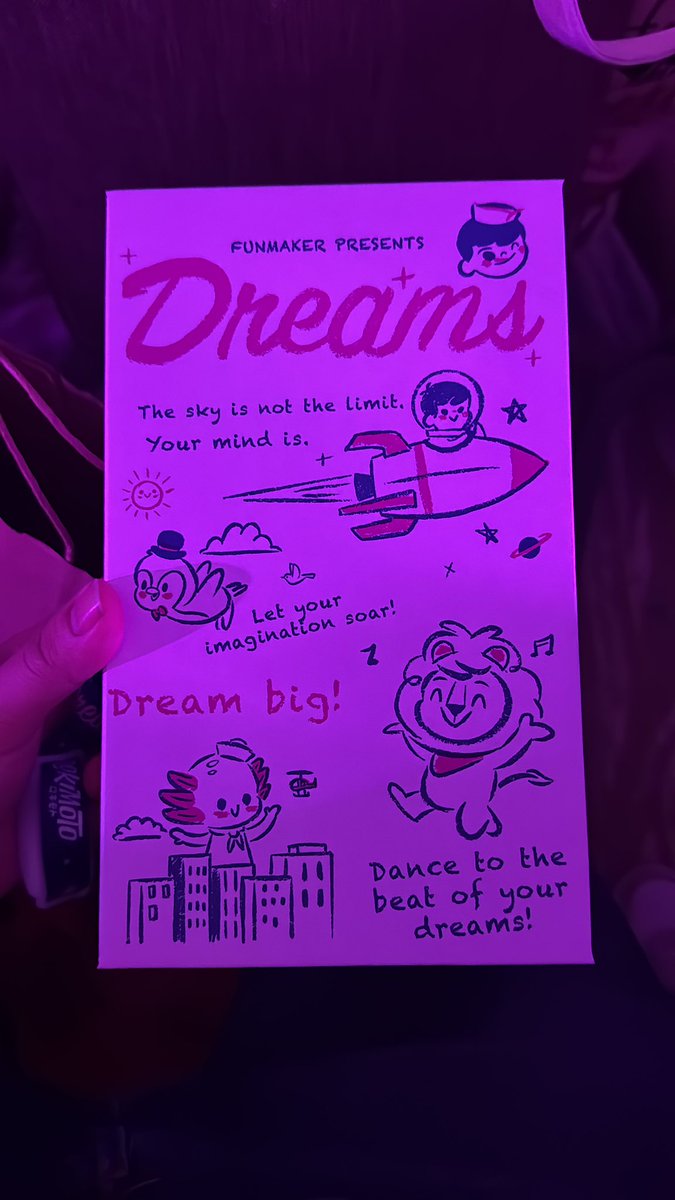 FUNMAKER PRESENTS
Dreams
The sky is not the limit.
Your mind is.
Let your
imagination soar!
Dream big!
Dance to the
beat of your
dreams!